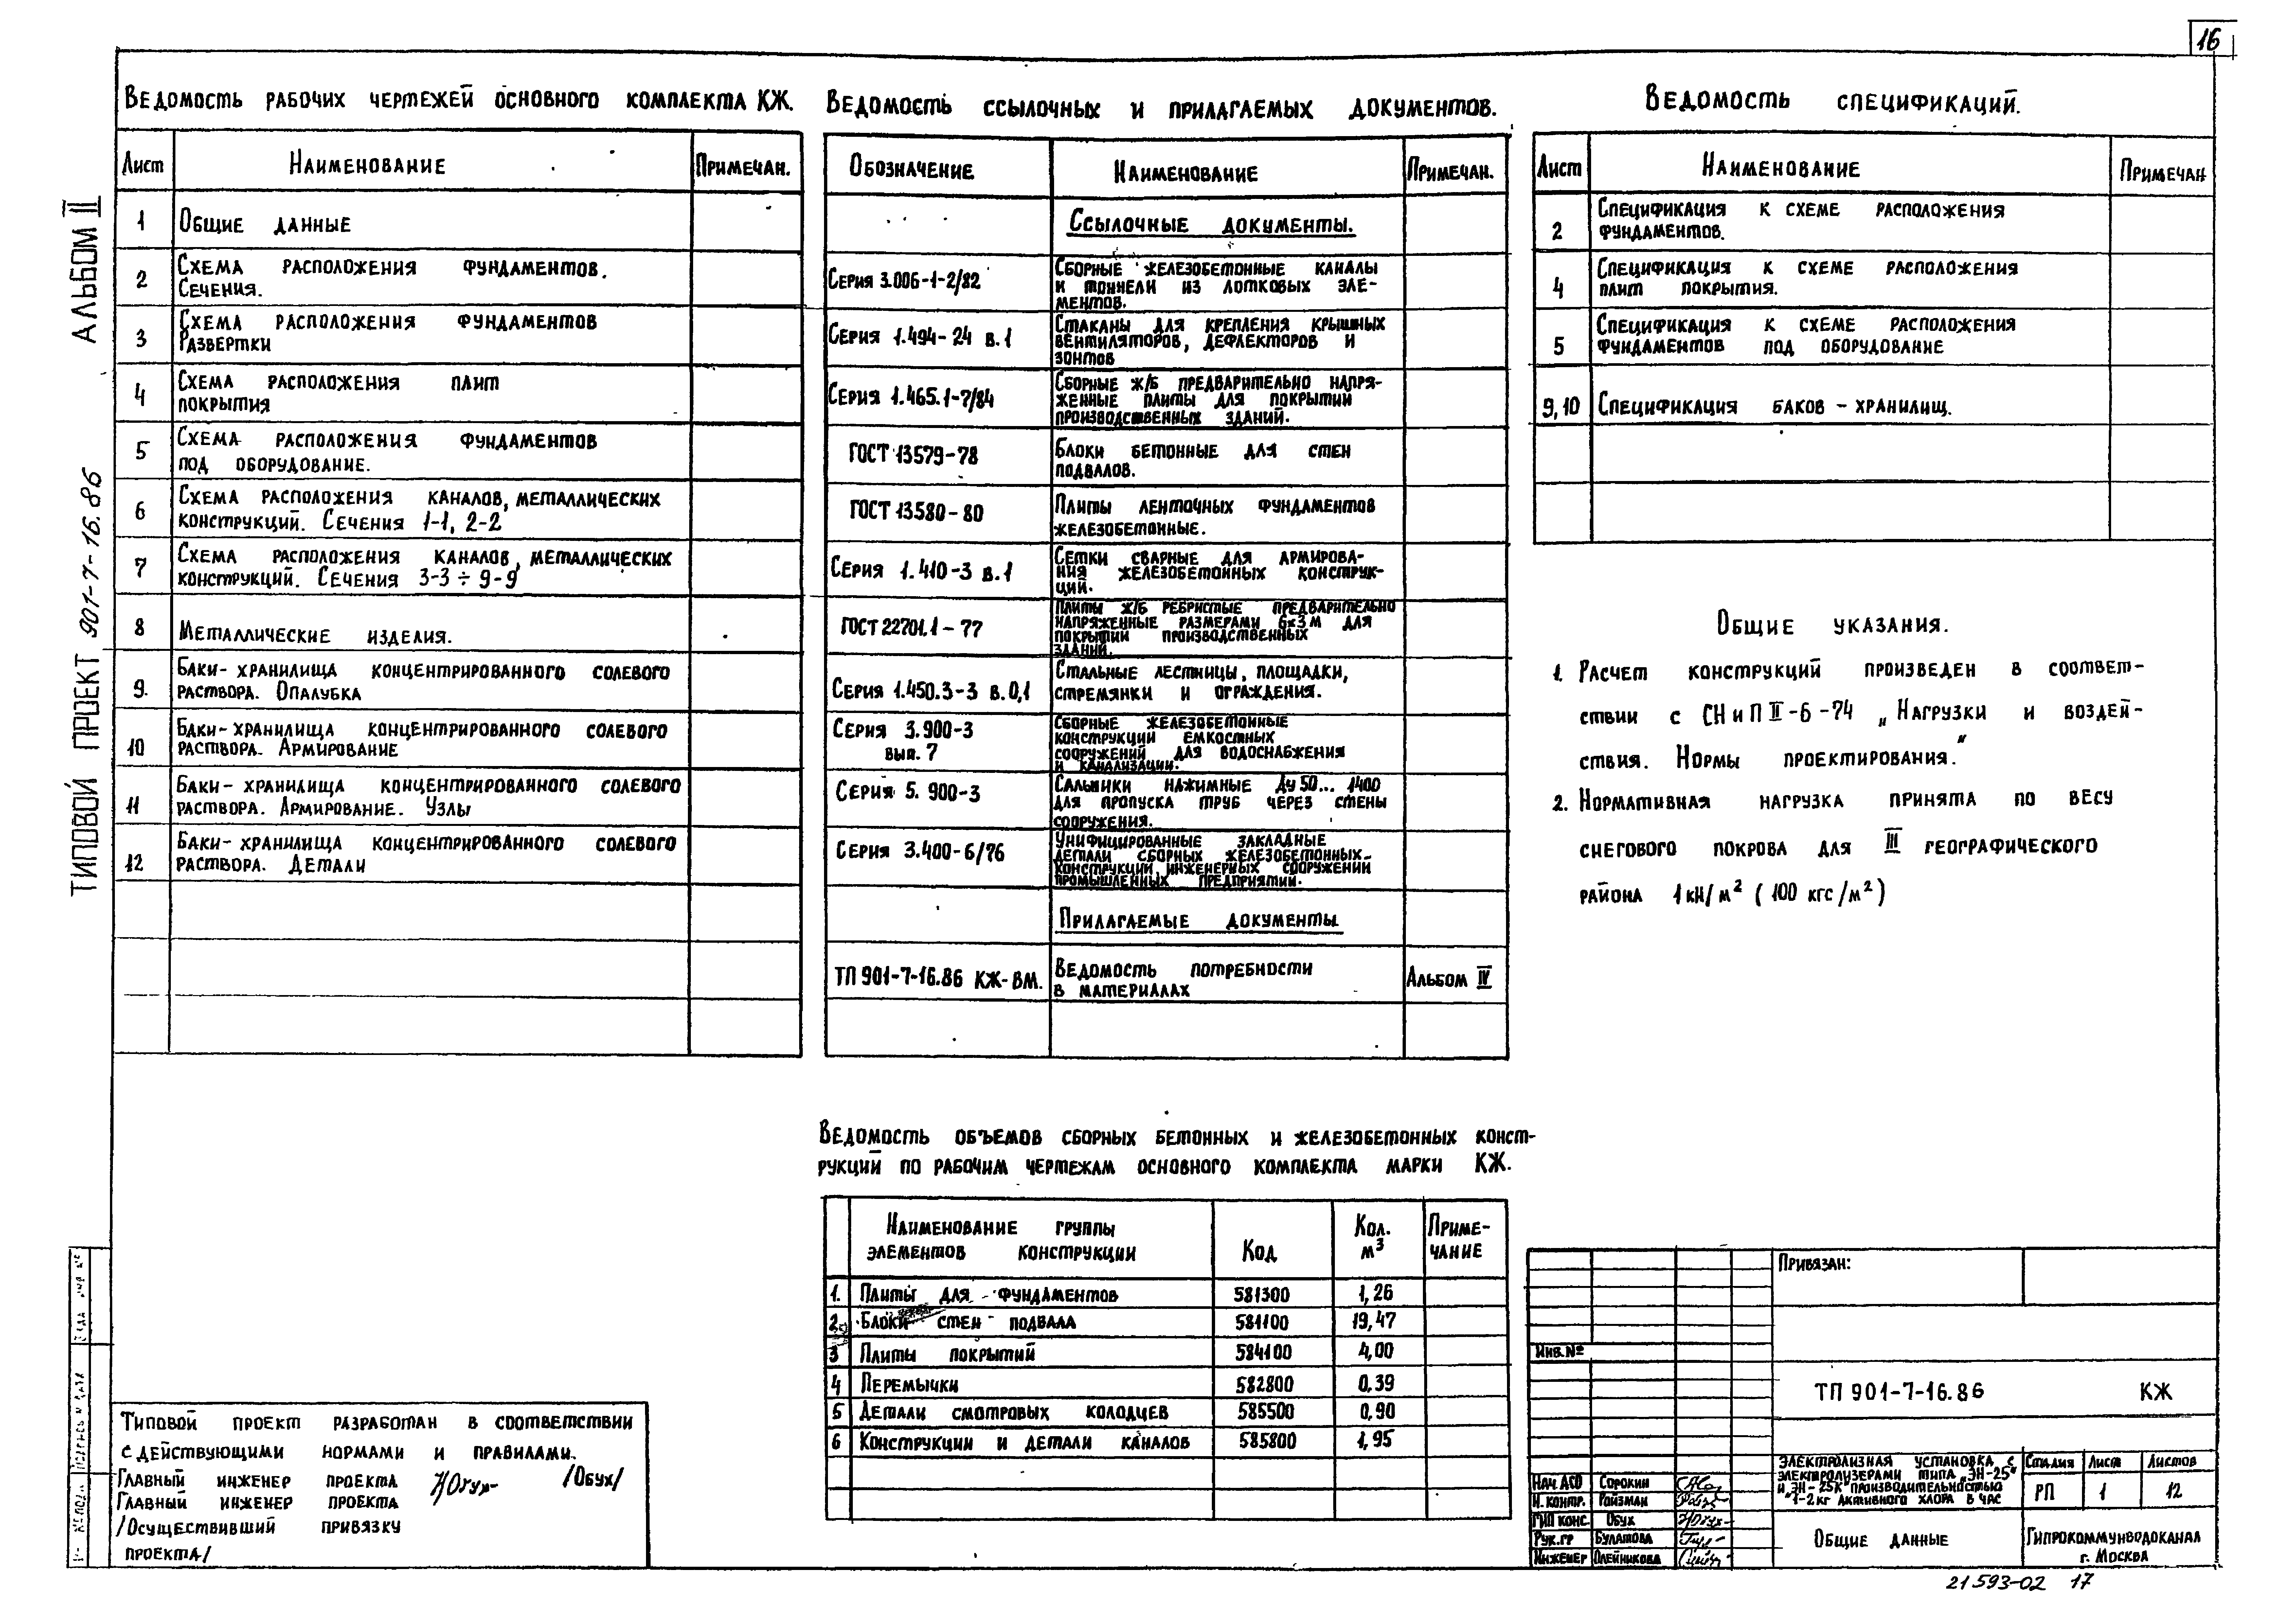 16
Ведомость рабочих чертежей основного комплекта КЖ.
Лист Наименование Примечан.
1 Общие данные
2 Схема расположения фундаментов.
Сечения.
3 Схема расположения фундаментов
Развертки
4 Схема расположения плит
покрытия
5 Схема расположения фундаментов
под оборудование.
6 Схема расположения каналов, металлических
конструкций. Сечения 1-1, 2-2
7 Схема расположения каналов, металлических
конструкций. Сечения 3-3 ÷ 9-9
8 Металлические изделия.
9. Баки-хранилища концентрированного солевого
раствора. Опалубка
10 Баки-хранилища концентрированного солевого
раствора. Армирование
11 Баки-хранилища концентрированного солевого
раствора. Армирование. Узлы
12 Баки-хранилища концентрированного солевого
раствора. Детали
Ведомость ссылочных и прилагаемых документов.
Обозначение Наименование Примечан.
Ссылочные документы.
Серия 3.006-1-2/82 Сборные железобетонные каналы
и тоннели из лотковых эле-
ментов.
Серия 1.494-24 в.1 Стаканы для крепления крышных
вентиляторов, дефлекторов и
зонтов
Серия 1.465.1-7/84 Сборные ж/б предварительно напря-
женные плиты для покрытий
производственных зданий.
ГОСТ 13579-78 Блоки бетонные для стен
подвалов.
ГОСТ 13580-80 Плиты ленточных фундаментов
железобетонные.
Серия 1.410-3 в.1 Сетки сварные для армирова-
ния железобетонных конструк-
ций.
ГОСТ 22701.1-77 Плиты ж/б ребристые предварительно
напряженные размерами 6х3м для
покрытий производственных
зданий.
Серия 1.450.3-3 в.0,1 Стальные лестницы, площадки,
стремянки и ограждения.
Серия 3.900-3
вып. 7 Сборные железобетонные
конструкции емкостных
сооружений для водоснабжения
и канализации.
Серия 5.900-3 Сальники нажимные Ду 50... 1400
для пропуска труб через стены
сооружения.
Серия 3.400-6/76 Унифицированные закладные
детали сборных железобетонных
конструкций инженерных сооружений
промышленных предприятий.
Прилагаемые документы
ТП 901-7-16.86 КЖ-ВМ. Ведомость потребности
в материалах Альбом IV
Ведомость спецификаций.
Лист Наименование Примечан
2 Спецификация к схеме расположения
фундаментов.
4 Спецификация к схеме расположения
плит покрытия.
5 Спецификация к схеме расположения
фундаментов под оборудование
9,10 Спецификация баков-хранилищ.
Общие указания.
1. Расчет конструкций произведен в соответ-
ствии с СНиП II-6-74 „Нагрузки и воздей-
ствия. Нормы проектирования.“
2. Нормативная нагрузка принята по весу
снегового покрова для III географического
района 1кН/м² (100 кгс/м²)
Ведомость объемов сборных бетонных и железобетонных конст-
рукций по рабочим чертежам основного комплекта марки КЖ.
Наименование группы
элементов конструкции Код Кол.
м³ Приме-
чание
1. Плиты для фундаментов 581300 1,26
2 Блоки стен подвала 581100 19,47
3 Плиты покрытий 584100 4,00
4 Перемычки 582800 0,39
5 Детали смотровых колодцев 585500 0,90
6 Конструкции и детали каналов 585800 1,95
Типовой проект разработан в соответствии
с действующими нормами и правилами.
Главный инженер проекта /Обух/
Главный инженер проекта
/Осуществивший привязку
проекта/
Привязан:
Инв.№
ТП 901-7-16.86 КЖ
Нач АСО Сорокин
Н. контр. Ройзман
ГИП конс. Обух
Рук.гр Булатова
Инженер Олейникова
Электролизная установка с
электролизерами типа „ЭН-25“
и „ЭН-25К“ производительностью
1-2кг активного хлора в час
Стадия Лист Листов
РП 1 12
Общие данные
Гипрокоммунводоканал
г. Москва
21593-02 17
Типовой проект 901-7-16.86 Альбом II